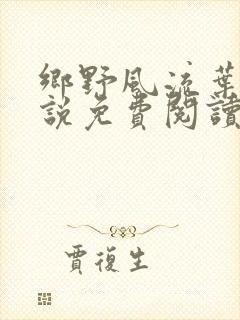 鄉野風流葉
說免費閱讀
賈復生